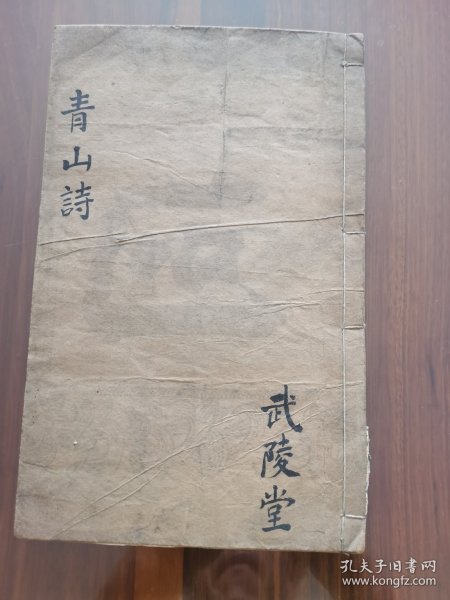 青山詩
武陵堂
孔夫子旧书网
www.kongfz.com